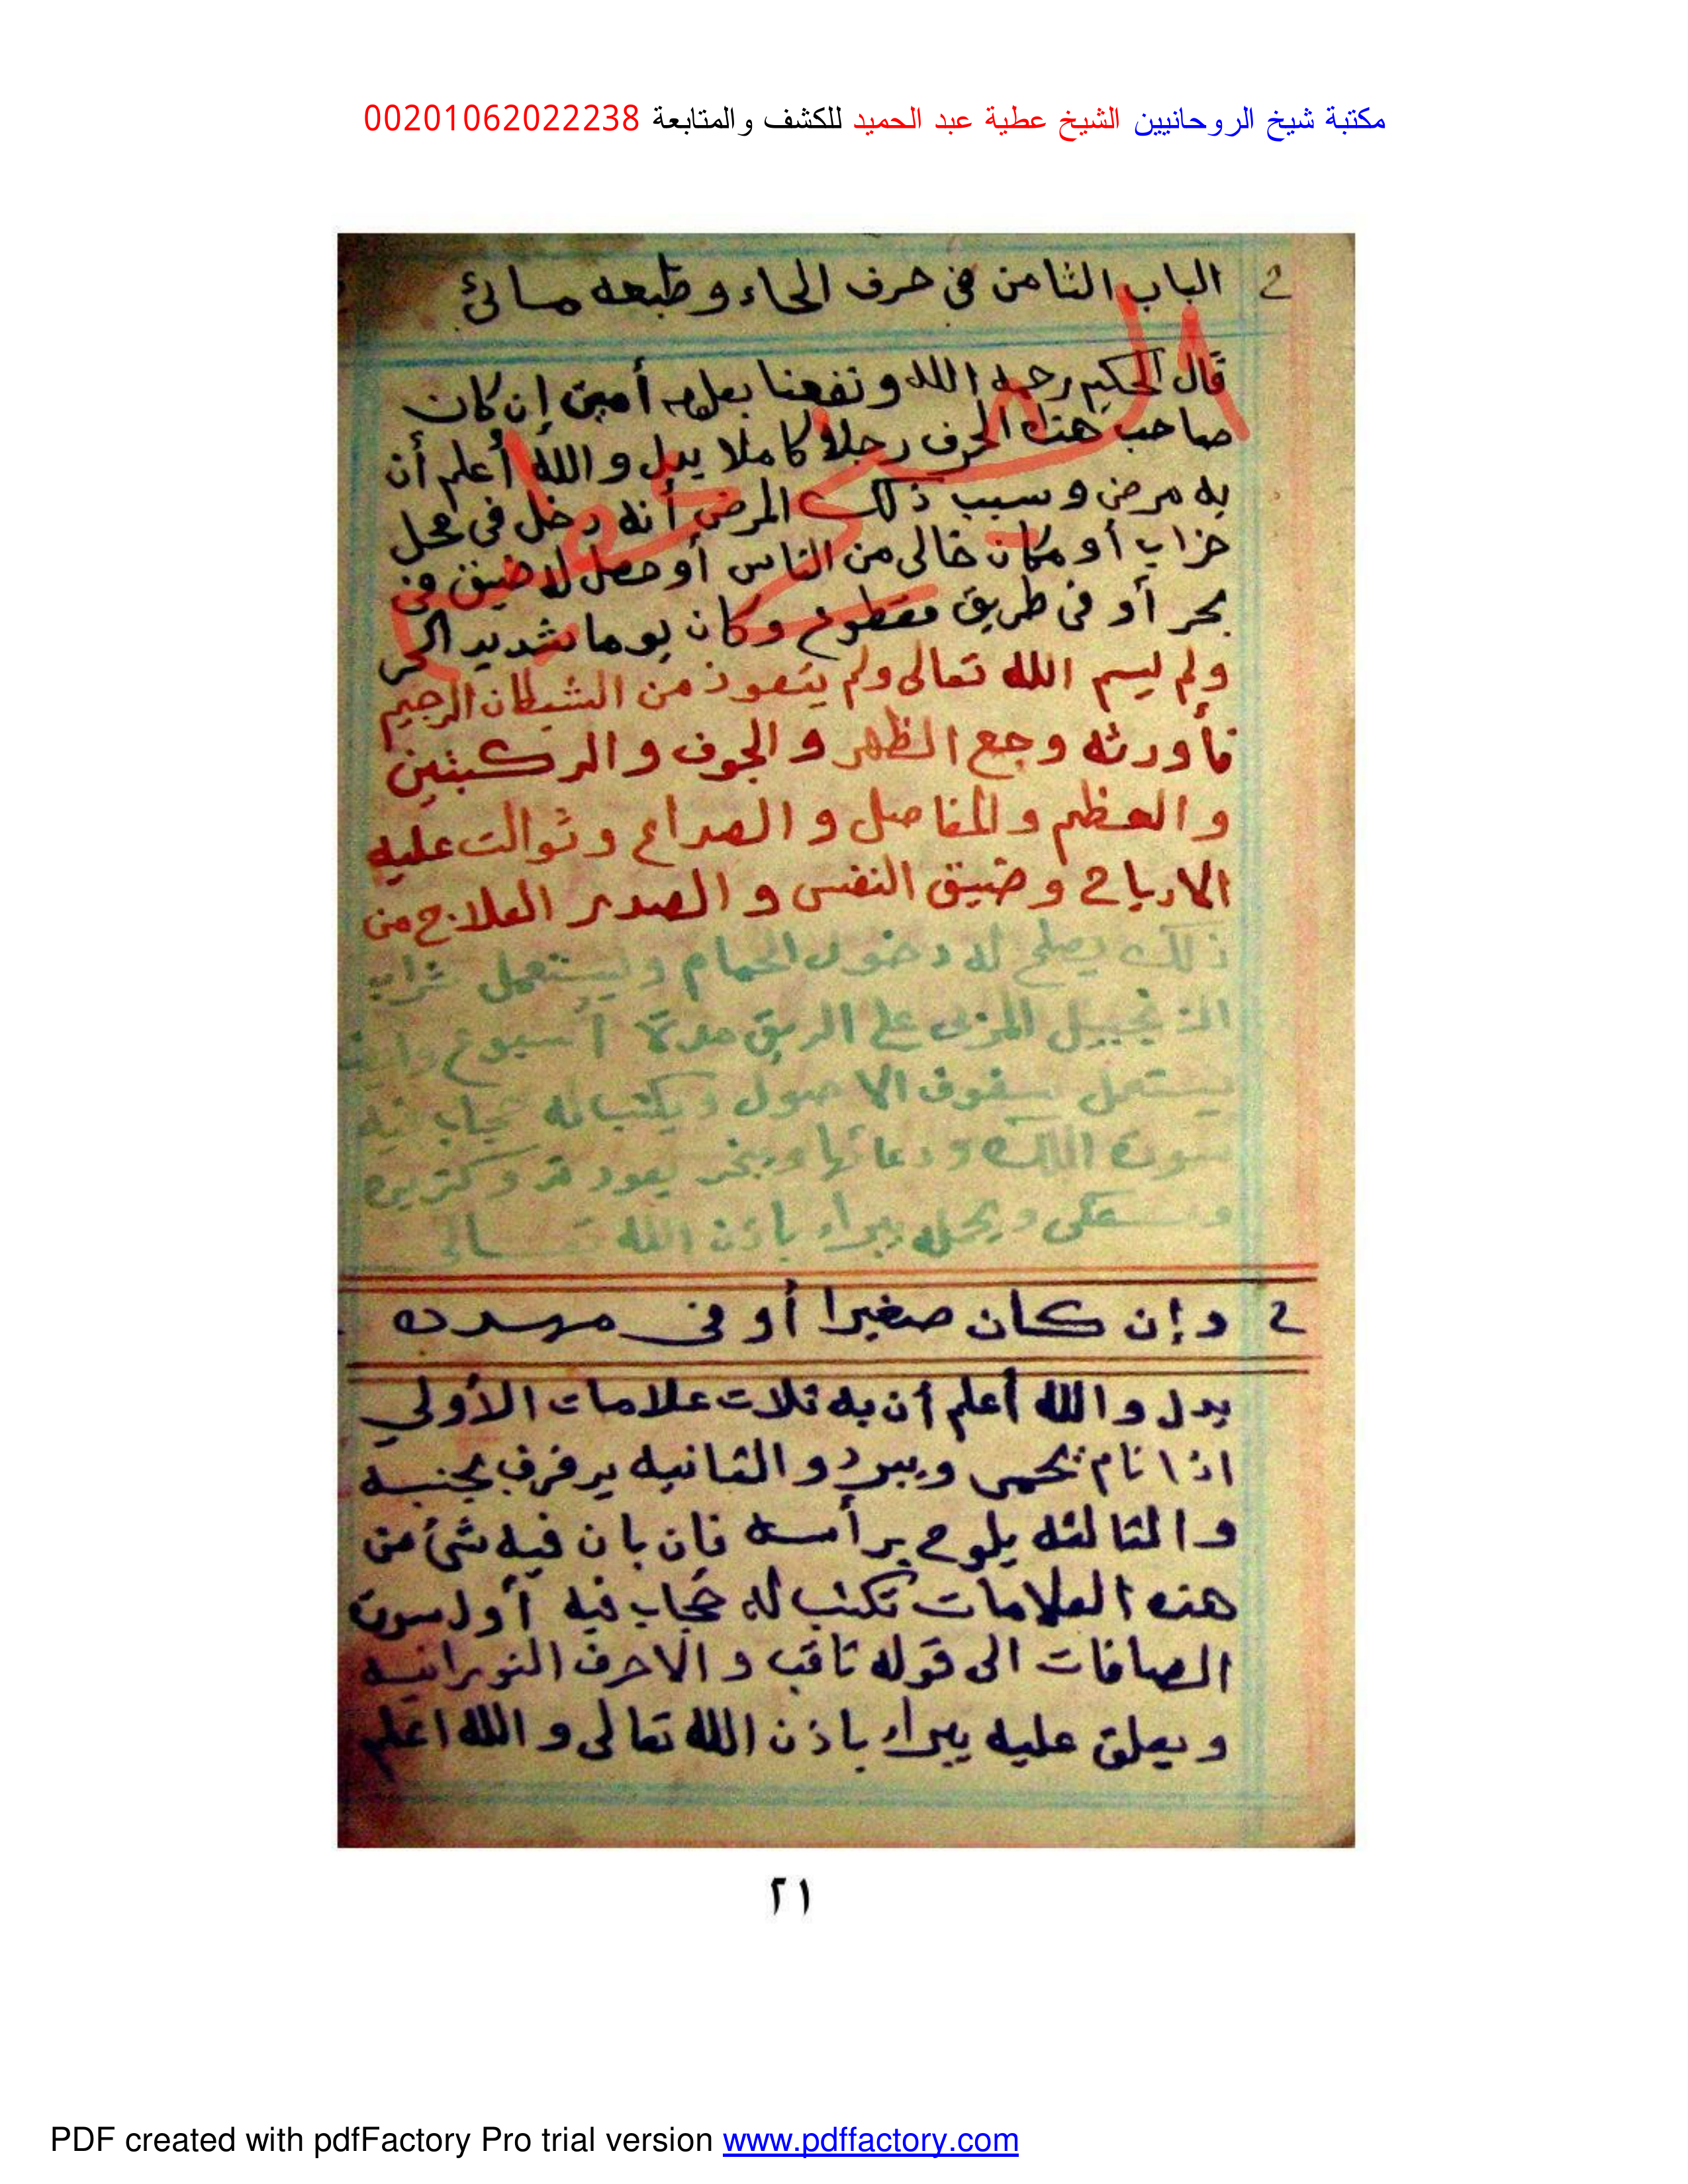 مكتبة شيخ الروحانيين الشيخ عطية عبد الحميد للكشف والمتابعة 00201062022238
الباب الثامن في حرف الحاء وطبعه مائئ
قال الحكيم رحمه الله ونفعنا بعلمه أمين إن كان
صاحب هذا الحرف رجلا كاملا يدل والله أعلم أن
به مرض وسبب ذلك المرض أنه دخل في محل
خراب أو مكان خالى من الناس أو حصل له ضيق في
بحر أو في طريق مقطوع وكان يوما شديد الحر
ولم ليسم الله تعالى ولم يتعوذ من الشيطان الرجيم
فأورثه وجع الظهر والجوف والركبتين
والعظم والمفاصل والصداع وتوالت عليه
الارياح وضيق النفس والصدر العلاج من
ذلك يصلح له دخول الحمام وليستعمل شراب
الزنجبيل المربى على الريق مدة أسبوع وايضا
يستعمل سفوف الاصول ويكتب له حجاب فيه
سورة الملك ودعائها ويبخر بعود قد وكزبره
ويحمله يبراء باذن الله تعالى
وإن كان صغيرا أو في مهده
يدل والله أعلم أن به ثلاث علامات الأولي
اذا نام يحمى ويبرد والثانيه يرفرف بجنبه
والثالثه يلوح برأسه فان بان فيه شئ من
هذه العلامات تكتب له حجاب فيه أول سورة
الصافات الى قوله ثاقب والاحرف النورانيه
ويعلق عليه يبراء باذن الله تعالى والله اعلم
٢١
PDF created with pdfFactory Pro trial version www.pdffactory.com